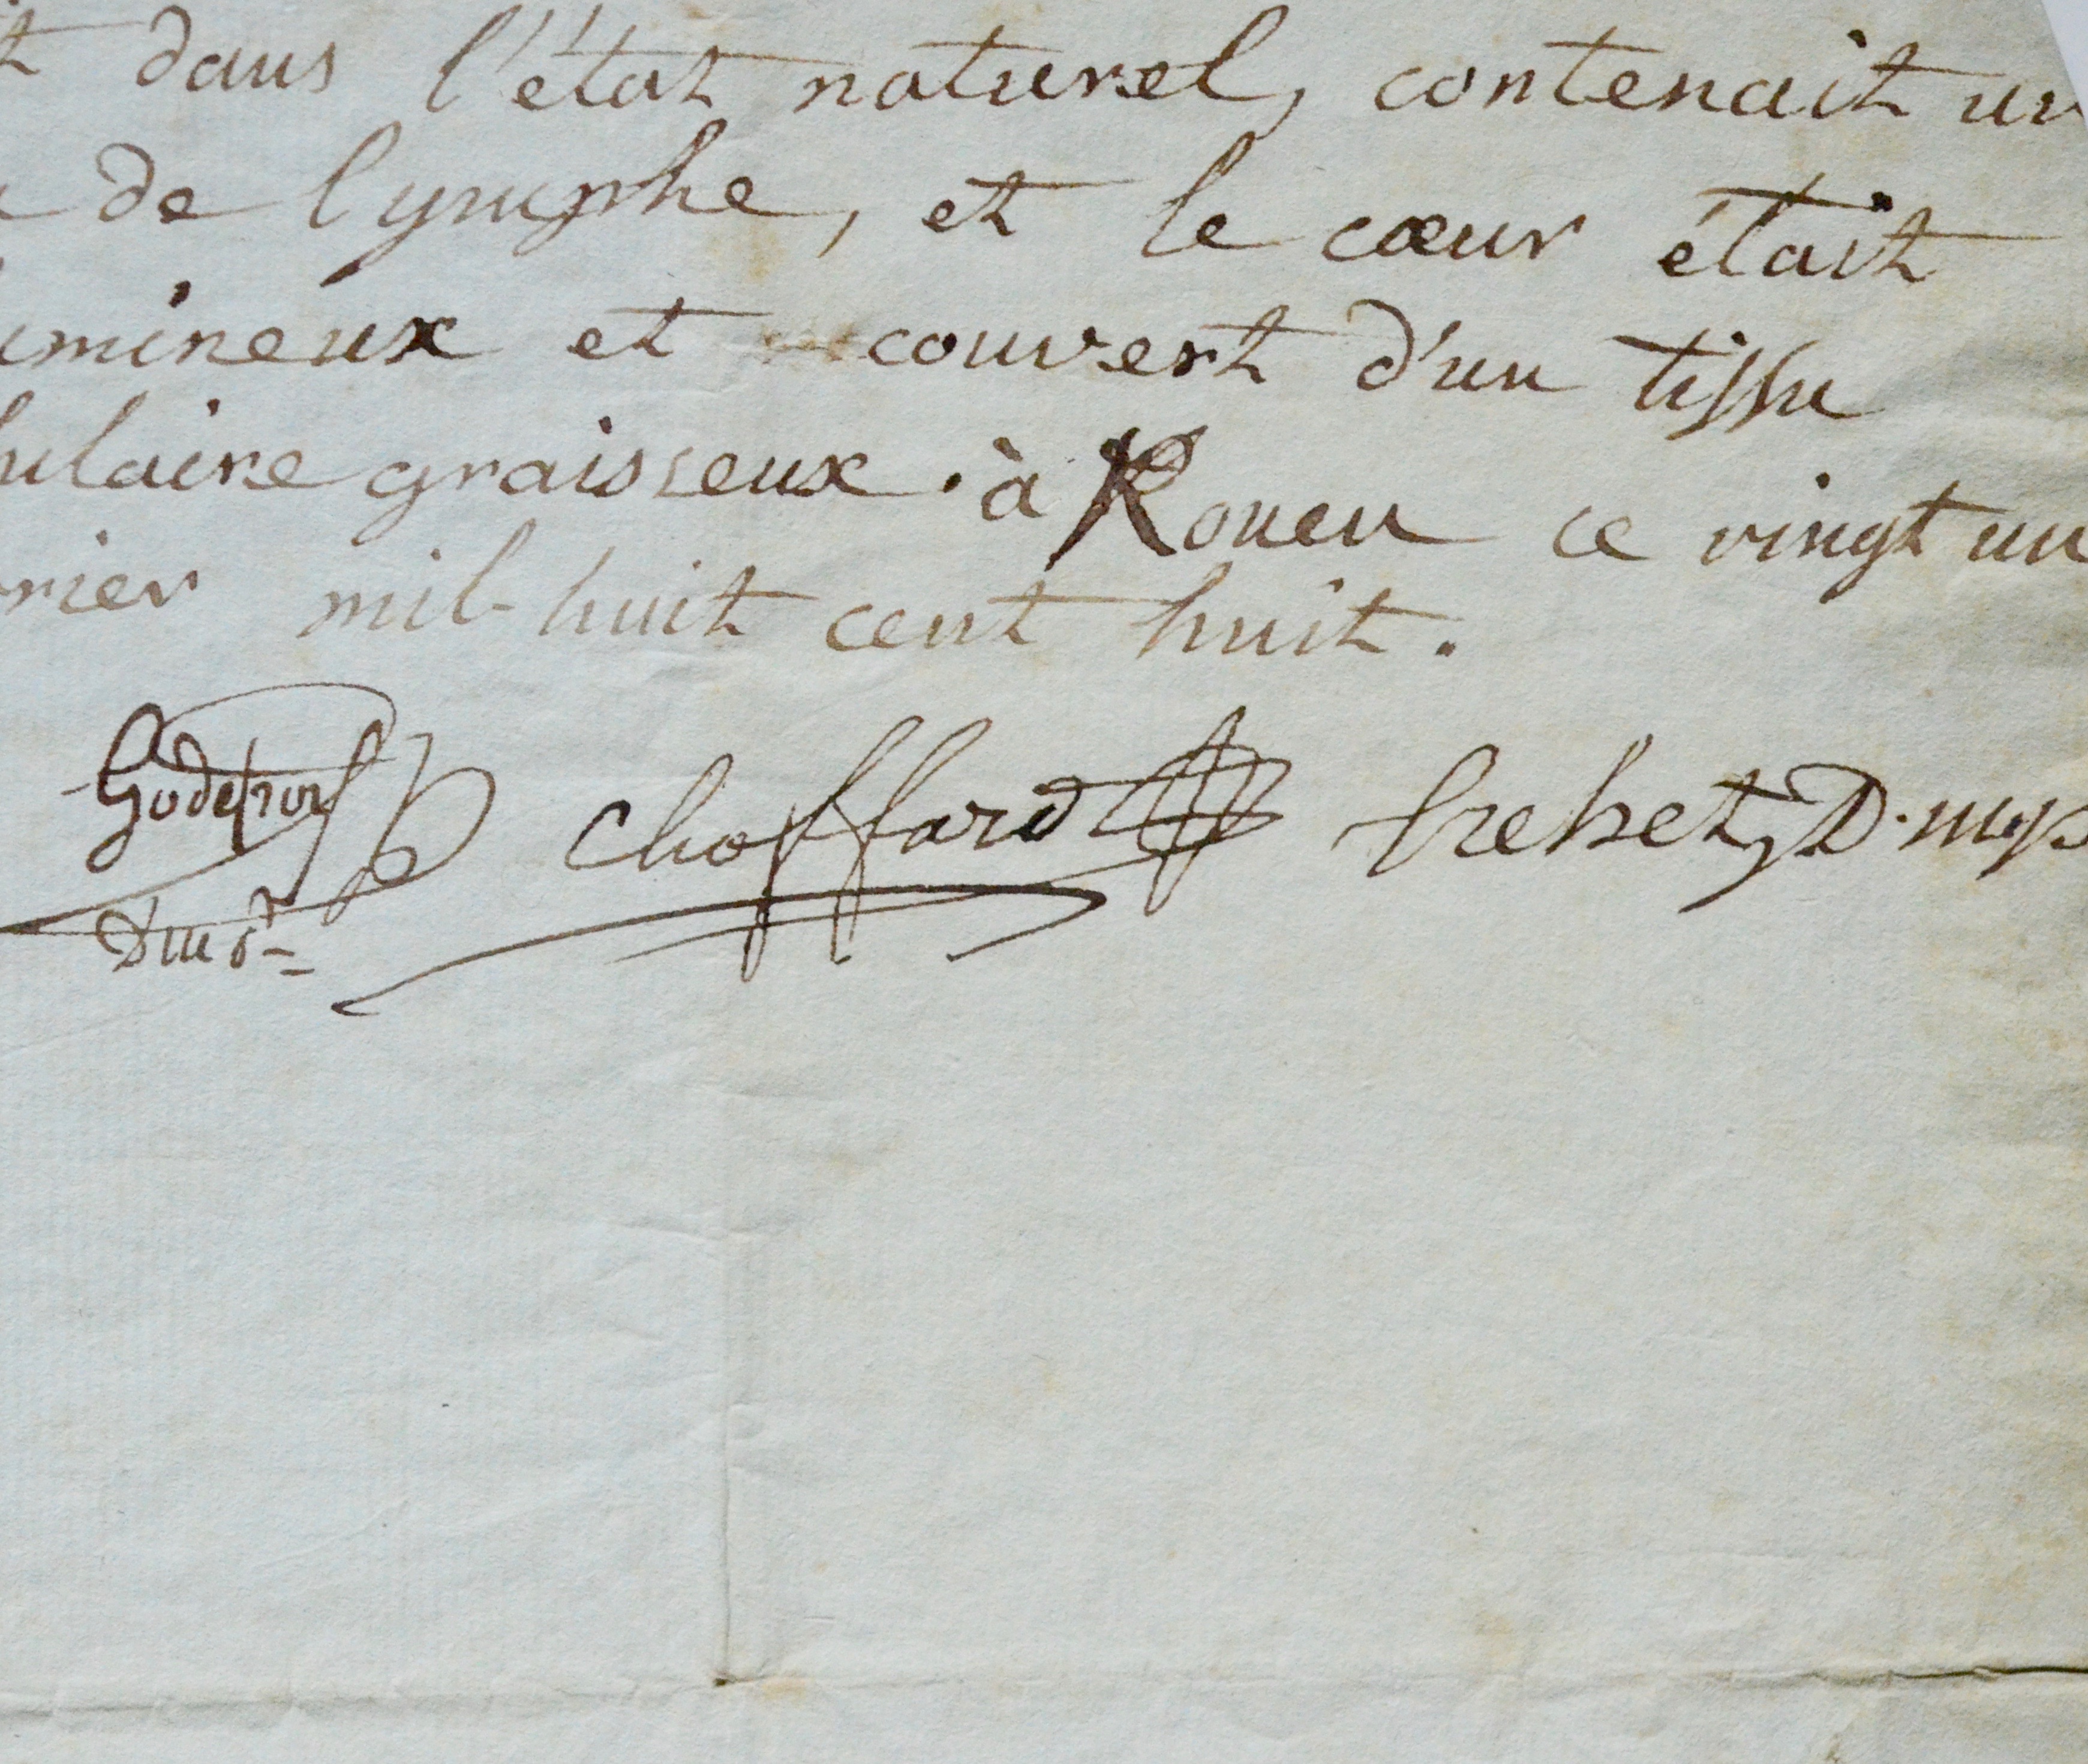 t dans l'état naturel, contenait un
de lymphe, et le cœur était
umineux et couvert d'un tissu
lulaire graisseux. à Rouen ce vingt un
rier mil-huit cent huit.
Godefroy Choffard frehet, D.